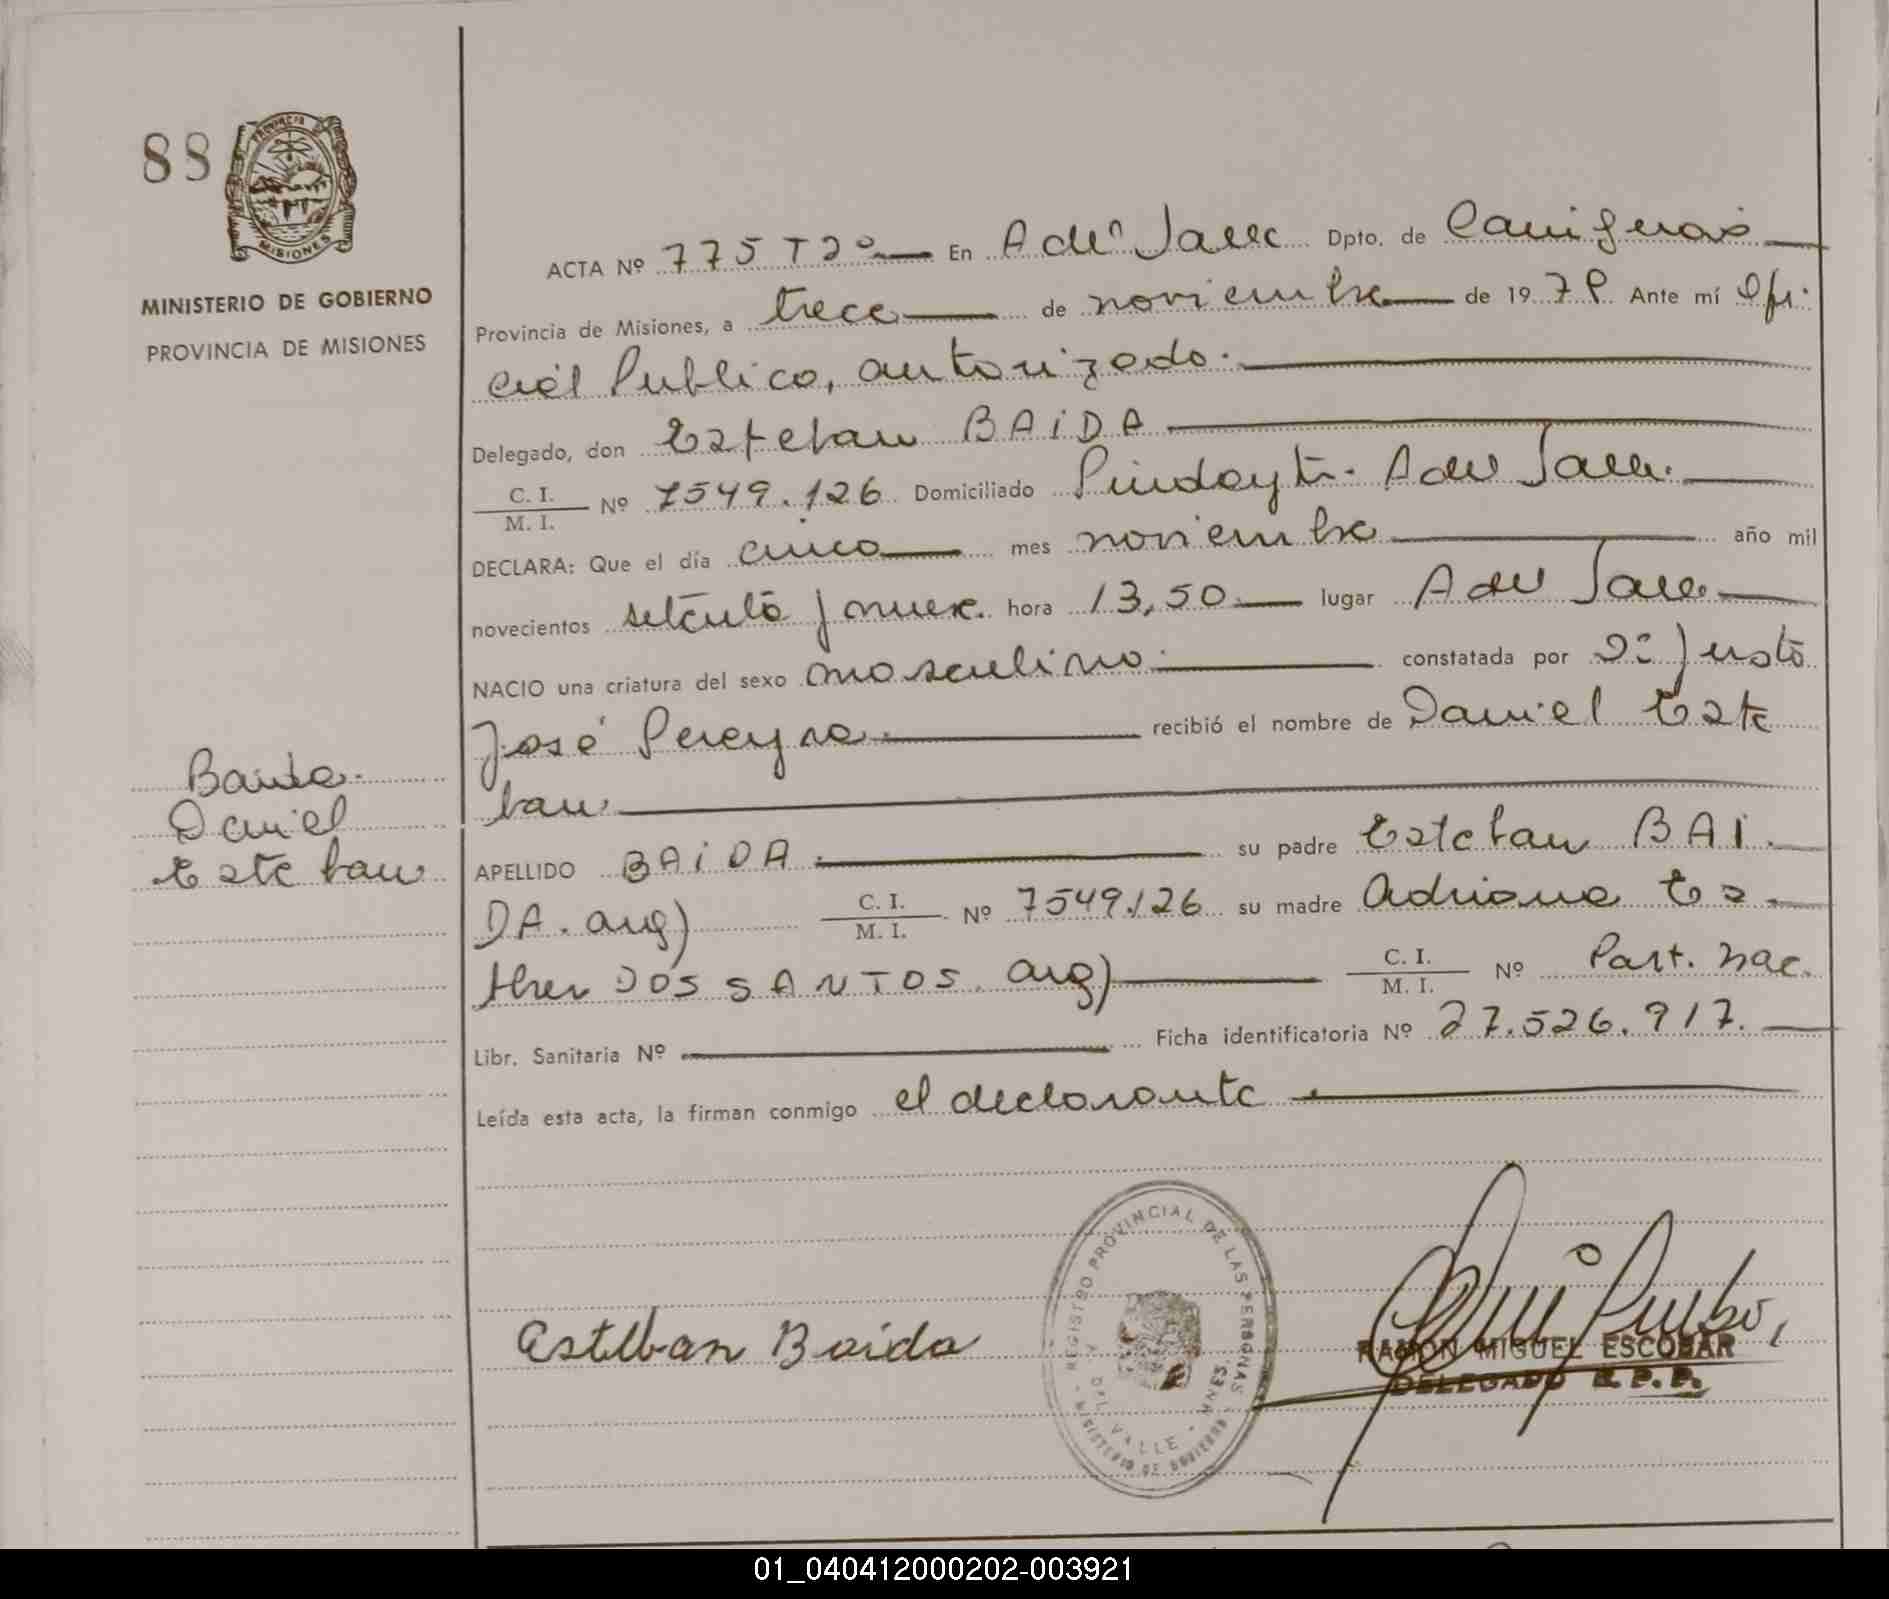 88
PROVINCIA DE MISIONES
MINISTERIO DE GOBIERNO
PROVINCIA DE MISIONES
ACTA Nº 775 T2º En A del Valle Dpto. de Cainguas
Provincia de Misiones, a trece de noviembre de 1979 Ante mí Ofi-
cial Publico, autorizado.
Delegado, don Esteban BAIDA
C. I. / M. I. Nº 7549.126 Domiciliado Pindayti. A del Valle.
DECLARA: Que el día cinco mes noviembre año mil
novecientos setenta y nueve. hora 13,50 lugar A del Valle
NACIO una criatura del sexo masculino. constatada por Dr Justo
José Pereyra. recibió el nombre de Daniel Este
ban.
Baida.
Daniel
Esteban
APELLIDO BAIDA. su padre Esteban BAI.
DA. arg) C. I. / M. I. Nº 7549.126 su madre Adriana Es
ther DOS SANTOS. arg) C. I. / M. I. Nº Part. nac.
Libr. Sanitaria Nº Ficha identificatoria Nº 27.526.917.
Leída esta acta, la firman conmigo el declarante
Esteban Baida
REGISTRO PROVINCIAL DE LAS PERSONAS
MINISTERIO DE GOBIERNO
A. DEL VALLE - MNES.
RAMON MIGUEL ESCOBAR
DELEGADO R.P.P.
01_040412000202-003921